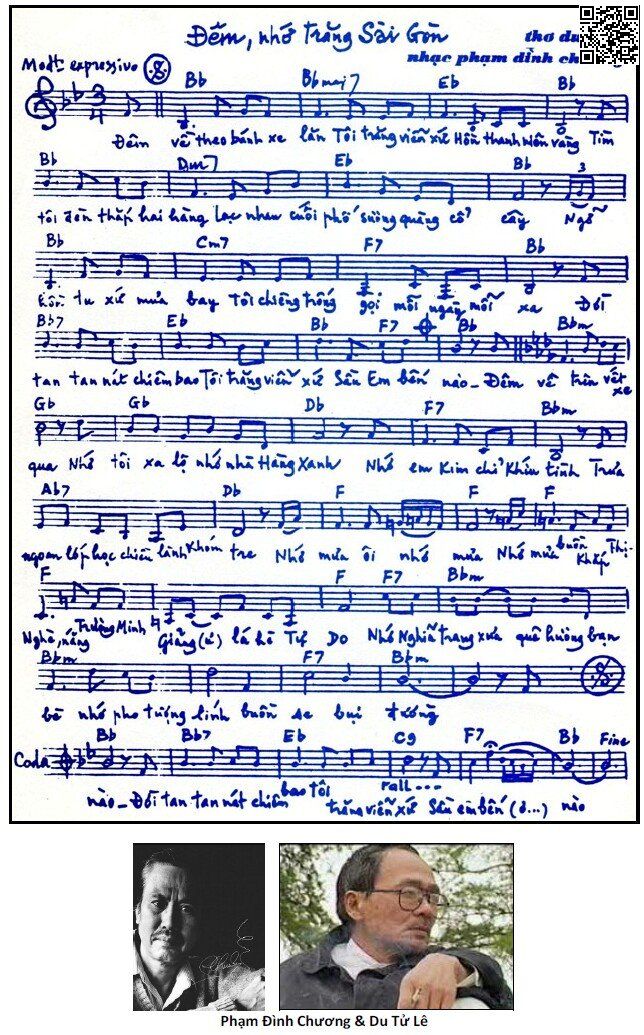 Đêm, nhớ trăng Sài Gòn
thơ du
nhạc phạm đình ch
Modto expressivo
Bb Bbmaj7 Eb Bb
Đêm về theo bánh xe lăn Tôi trăng viễn xứ Hồn thanh niên vàng Tìm
Bb Dm7 Eb Bb 3
tôi đèn thắp hai hàng Lạc nhau cuối phố sương quàng cổ cây Ngỡ
Bb Cm7 F7 Bb
hồn tu xứ mưa bay Tôi chiêng trống gọi mỗi ngày mỗi xa Đời
Bb7 Eb Bb F7 Bb Bbm
tan tan nát chiêm bao Tôi trăng viễn xứ Sầu Em bến nào - Đêm về trên vết xe
Gb Gb Db F7 Bbm
qua Nhớ tôi xa lộ nhớ nhà Hàng Xanh Nhớ em Kim chỉ khíu tình Trưa
Ab7 Db F F F
ngoan lớp học chiều lành khóm tre Nhớ mưa ôi nhớ mưa Nhớ mưa buồn khắp Thị-
F F F7 Bbm
Nghè, nắng Trường Minh Giảng (ư) lá hè Tự Do Nhớ Nghĩa trang xưa quê hương bạn
Bbm F7 Bbm
bè nhớ pho tượng lính buồn se bụi đường
Coda Bb Bb7 Eb C9 F7 Bb Fine
nào - Đời tan tan nát chiêm bao tôi rall...
trăng viễn xứ Sầu em bến (ơ...) nào
Phạm Đình Chương & Du Tử Lê